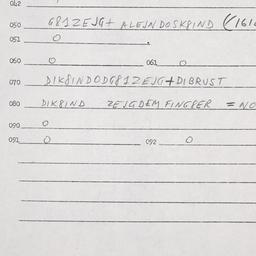 042
050 G812EJG+ ALEJNDOSKPIND (161
051 0
060 0 061 0
070 DIK8INDODG812EJG+DIBRUST
080 DIK8IND ZEJGDEM FINGPER = NO
090 0
091 0 092 0